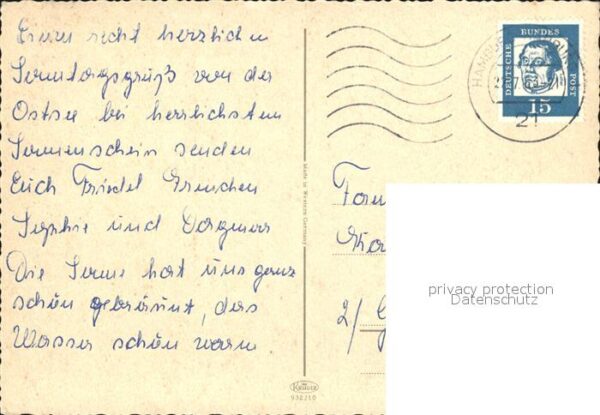 Einen recht herzlichen
Sonntagsgruß von der
Ostsee bei herrlichstem
Sonnenschein senden
Euch Friedel Gretchen
Sophie und Dagmar
Die Sonne hat uns ganz
schön gebräunt, das
Wasser schön warm
DEUTSCHE
BUNDES
POST
15
HAMBURG
21
Made in Western Germany
Fam
2/
privacy protection
Datenschutz
Krüger
932/10